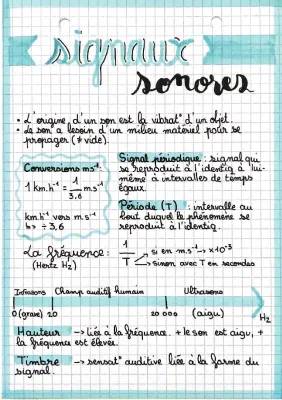 signaux
sonores
• L'origine d'un son est la vibrat° d'un objet.
• Le son a besoin d'un milieu matériel pour se
propager (≠ vide).
Conversions ms⁻¹
1 Km.h⁻¹ = 1/3,6 m.s⁻¹
km.h⁻¹ vers m.s⁻¹
↳ ÷ 3,6
Signal périodique : signal qui
se reproduit à l'identiq à lui-
même à intervalles de temps
égaux.
Période (T) : intervalle au
bout duquel le phénomène se
reproduit à l'identiq.
La fréquence : 1/T
(Hertz Hz)
si en m.s⁻¹ → x10⁻³
sinon avec T en secondes
Infrasons Champ auditif humain Ultrasons
0 (grave) 20 20 000 (aigu) Hz
Hauteur → liée à la fréquence. + le son est aigu, +
la fréquence est élevée.
Timbre → sensat° auditive liée à la forme du
signal.